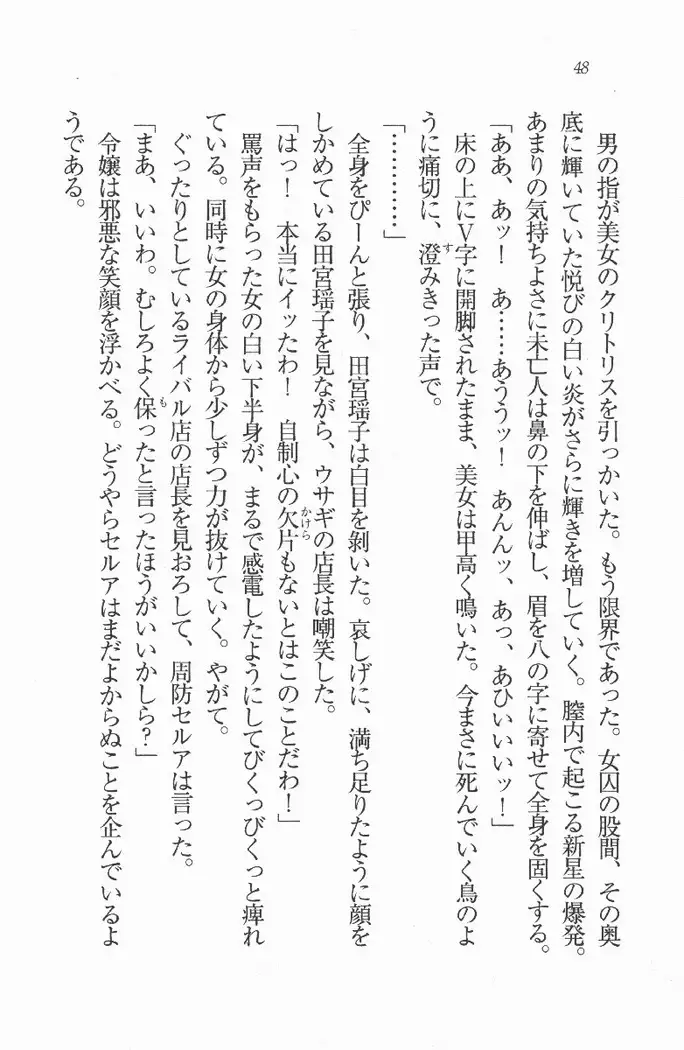 48
男の指が美女のクリトリスを引っかいた。もう限界であった。女囚の股間、その奥
底に輝いていた悦びの白い炎がさらに輝きを増していく。膣内で起こる新星の爆発。
あまりの気持ちよさに未亡人は鼻の下を伸ばし、眉を八の字に寄せて全身を固くする。
「ああ、あッ！　あ……あううッ！　あんんッ、あっ、あひいいいッ！」
床の上にV字に開脚されたまま、美女は甲高く鳴いた。今まさに死んでいく鳥のよ
す
うに痛切に、澄みきった声で。
「…………」
全身をぴーんと張り、田宮瑶子は白目を剝いた。哀しげに、満ち足りたように顔を
しかめている田宮瑶子を見ながら、ウサギの店長は嘲笑した。
かけら
「はっ！　本当にイッたわ！　自制心の欠片もないとはこのことだわ！」
罵声をもらった女の白い下半身が、まるで感電したようにしてびくっびくっと痺れ
ている。同時に女の身体から少しずつ力が抜けていく。やがて。
ぐったりとしているライバル店の店長を見おろして、周防セルアは言った。
も
「まあ、いいわ。むしろよく保ったと言ったほうがいいかしら？」
令嬢は邪悪な笑顔を浮かべる。どうやらセルアはまだよからぬことを企んでいるよ
うである。